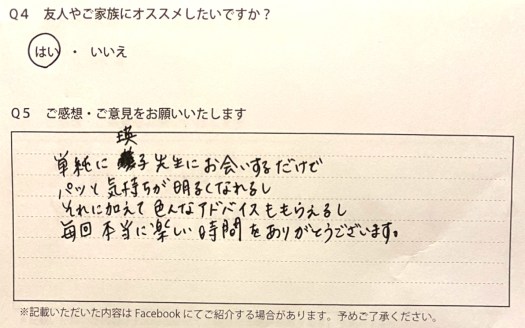 Q4 友人やご家族にオススメしたいですか？
はい ・ いいえ
Q5 ご感想・ご意見をお願いいたします
単純に瑛子先生にお会いするだけで
パッと気持ちが明るくなれるし
それに加えて色んなアドバイスももらえるし
毎回本当に楽しい時間をありがとうございます。
※記載いただいた内容は Facebook にてご紹介する場合があります。予めご了承ください。